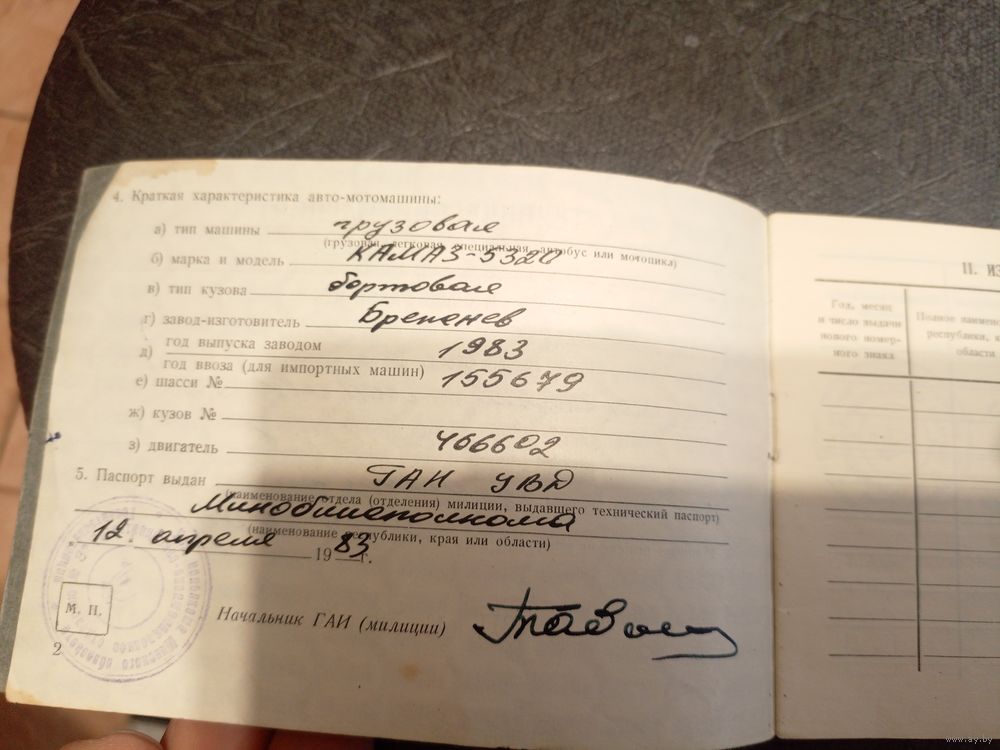 4. Краткая характеристика авто-мотомашины:
а) тип машины грузовая
(грузовая, легковая, специальная, автобус или мотоцикл)
б) марка и модель КАМАЗ-5320
в) тип кузова бортовая
г) завод-изготовитель
д) год выпуска заводом 1983
год ввоза (для импортных машин)
е) шасси № 155679
ж) кузов №
з) двигатель 466602
5. Паспорт выдан ГАИ УВД
(наименование отдела (отделения) милиции, выдавшего технический паспорт)
Миноблисполкома
(наименование республики, края или области)
„12. апреля 1983 г.
М. П.
Начальник ГАИ (милиции)
2
II. ИЗ
Год, месяц
и число выдачи
нового номер-
ного знака
Полное наимено
республики, к
области
www.ay.by